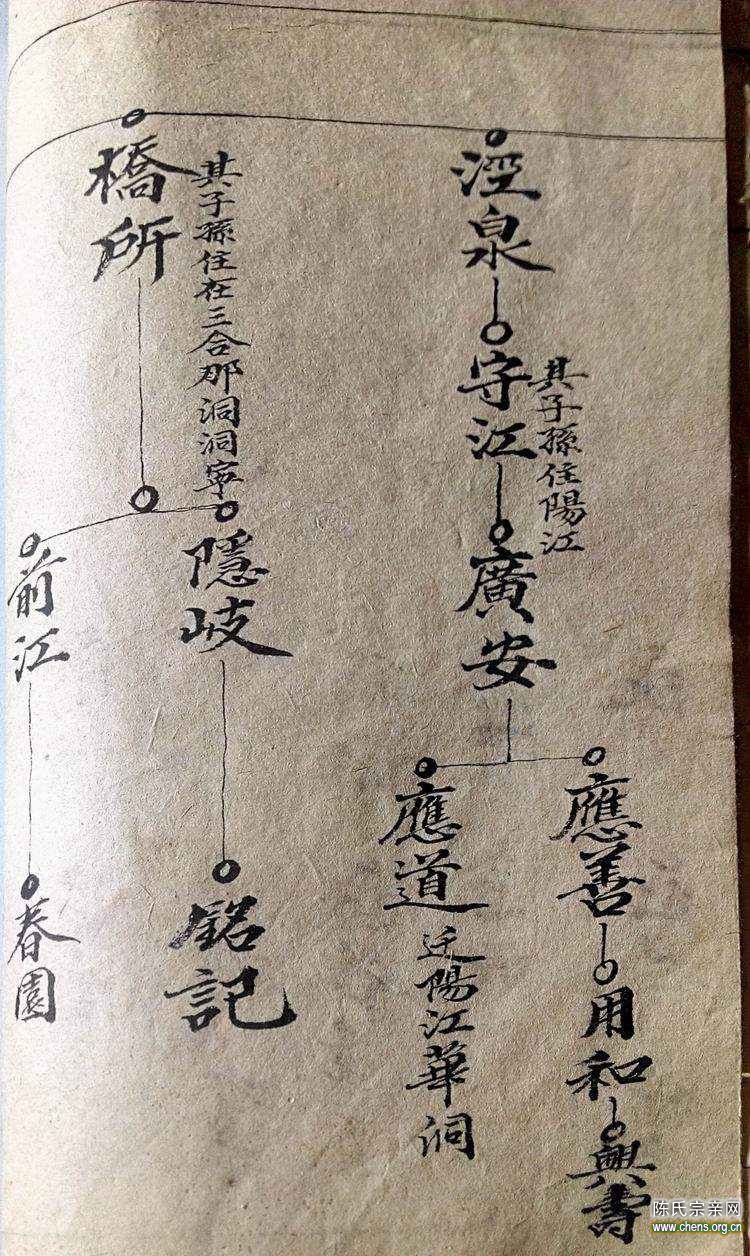 涇泉
守江
其子孫住陽江
廣安
應善
用和
興壽
應道
迁陽江華洞
橋所
其子孫住在三合那洞洞寧
隱岐
銘記
前江
春園
陈氏宗亲网
www.chens.org.cn